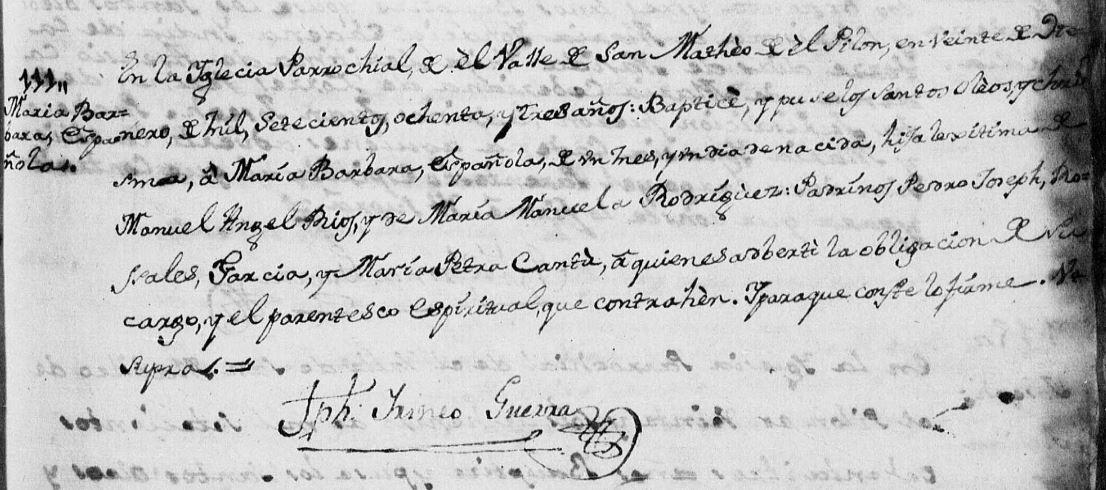 111,,
Maria Bar-
bara, Espa-
ñola.
En la Iglecia Parrochial, de èl Valle de San Mathèo de èl Pilon, en veinte de
nero, de mil, Setecientos, ochenta, y tres años: Bapticè, y puse los santos oléos, y chris
sma, â María Barbara, Española, de un mes, y un dia de nacida, hija lexitima de
Manuel Angel Rios, y de María Manuela Rodríguez: Padrinos Pedro Joseph, Ro-
sales, Garcia, y María Petra Cantù, â quienes adberti la obligacion de su
cargo, y el parentesco Espíritual, que contrahèn. Y para que conste lo firme. Ut
supra. =
Jph. Irineo Guerra